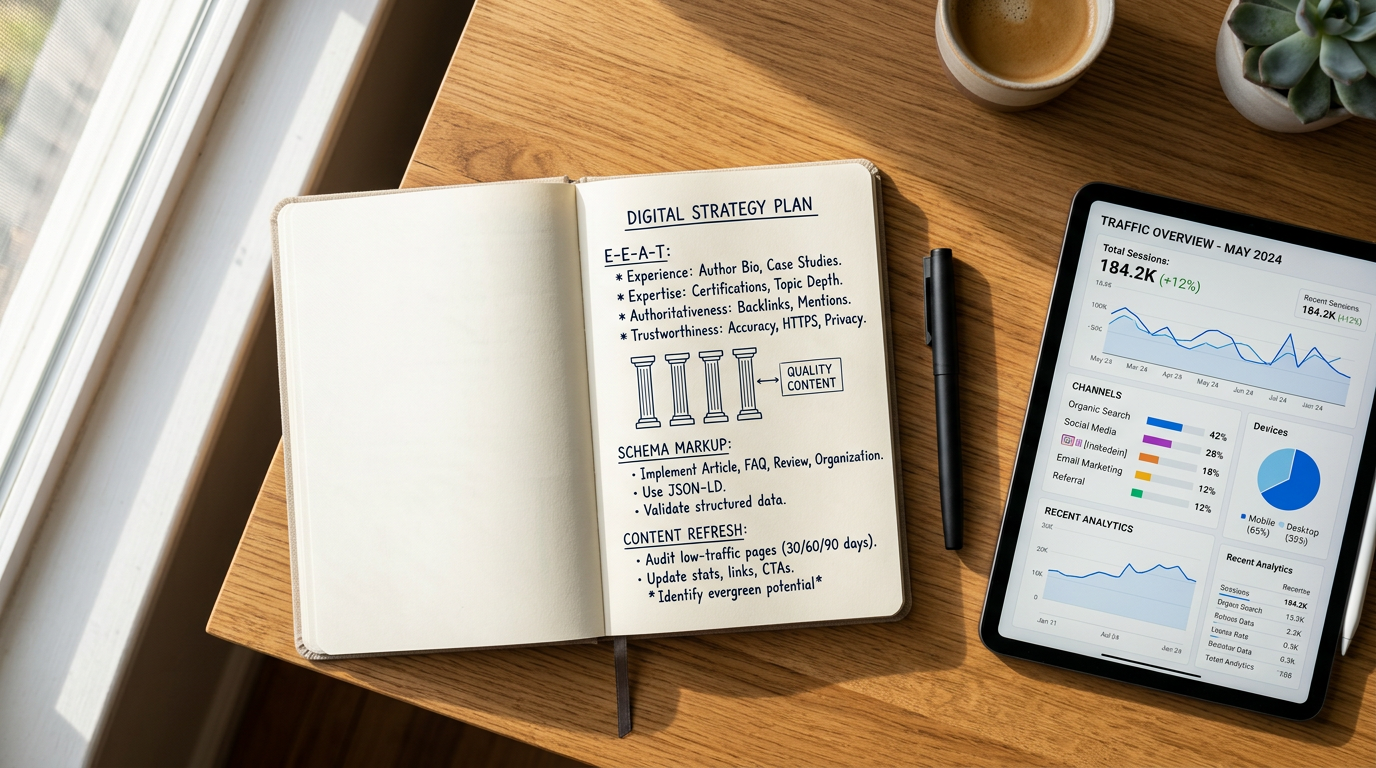 DIGITAL STRATEGY PLAN
E-E-A-T:
* Experience: Author Bio, Case Studies.
* Expertise: Certifications, Topic Depth.
* Authoritativeness: Backlinks, Mentions.
* Trustworthiness: Accuracy, HTTPS, Privacy.
QUALITY
CONTENT
SCHEMA MARKUP:
• Implement Article, FAQ, Review, Organization.
• Use JSON-LD.
• Validate structured data.
CONTENT REFRESH:
• Audit low-traffic pages (30/60/90 days).
• Update stats, links, CTAs.
* Identify evergreen potential*
TRAFFIC OVERVIEW - MAY 2024
Total Sessions:
184.2K (+12%)
Recent Sessions
184.2K (+12%)
100K
May 28
Mar 24
Apr 28
May 24
Jun 24
Jul 24
CHANNELS
Organic Search
42%
Social Media
28%
18%
Email Marketing
12%
Referral
12%
Devices
Mobile
(65%)
Desktop
RECENT ANALYTICS
20K
0
Recent Analytics
Sessions
184.2K
15.3K
2.2K